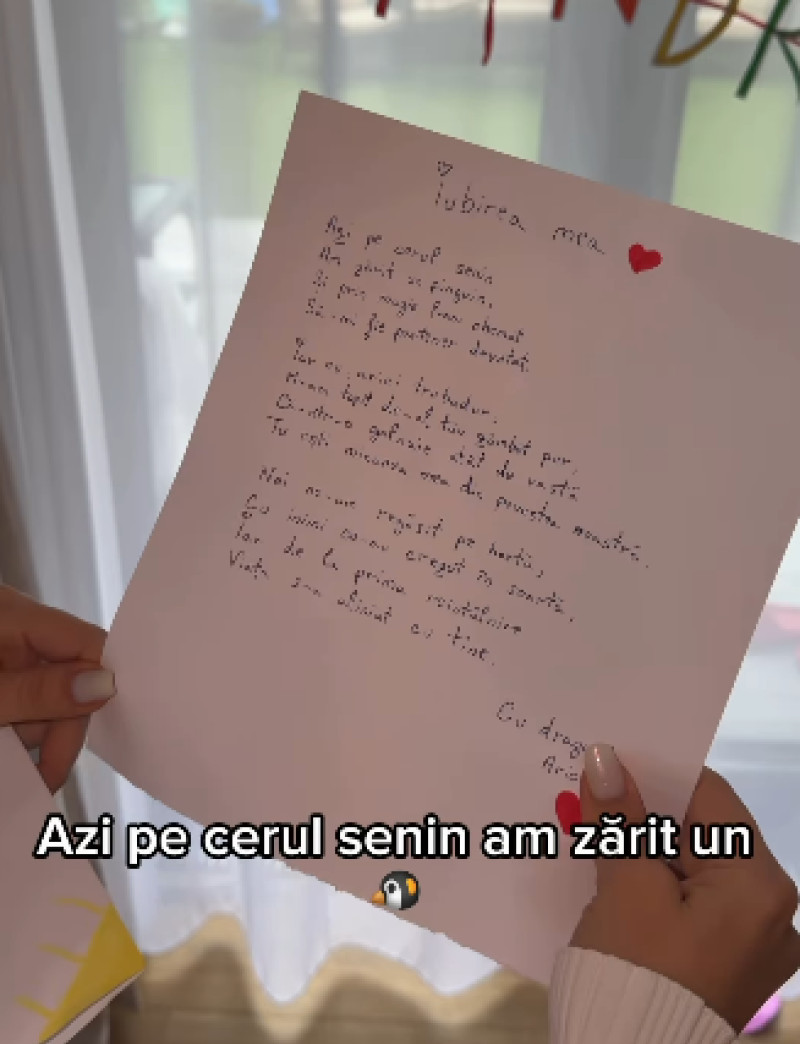 Iubirea mea
Azi pe cerul senin
Am zărit un pinguin,
Și prin magie l-am chemat
Să-mi fie partener devotat.
Iar eu, trubadur,
M-am topit de-al tău zâmbet pur,
Că-ntr-o galaxie atât de vastă
Tu ești mea din povestea noastră.
Noi ne-am regăsit pe hartă,
Cu inimi ce-au crezut în soartă,
Iar de la prima reîntâlnire
Viața s-a aliniat cu tine.
Cu drag
Aric
Azi pe cerul senin am zărit un